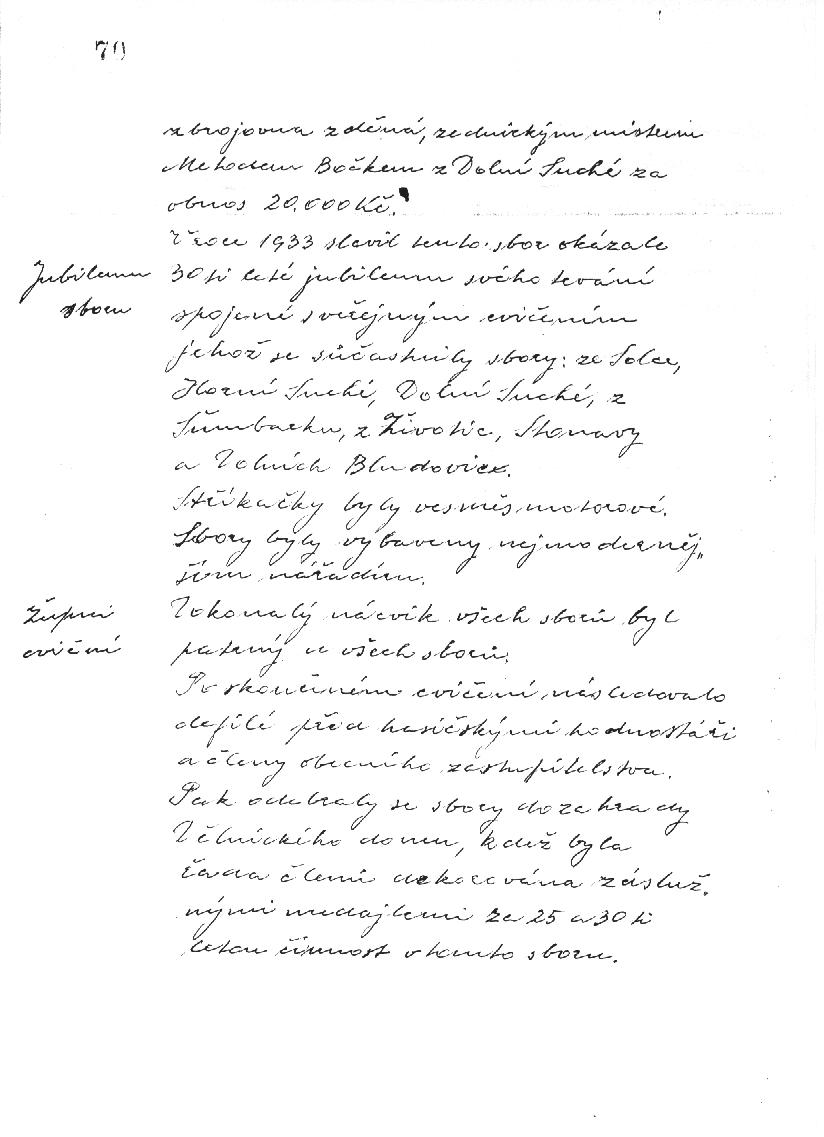 70
zbrojovna zděná, zednickým mistrem
Metodem Bočkem z Dolní Suché za
obnos 20.000 Kč.
V roce 1933 slavil tento sbor okázale
Jubileum
30ti leté jubileum svého trvání
sboru
spojené s veřejným cvičením
jehož se súčastnily sbory: ze Solce,
Horní Suché, Dolní Suché, z
Šumbarku, z Životic, Stonavy
a Dolních Bludovic.
Stříkačky byly vesměs motorové.
Sbory byly vybaveny nejmoderněj„
ším nářadím.
Župní
Dokonalý nácvik všech sborů byl
cvičení
patrný u všech sborů.
Po skončeném cvičení následovalo
defilé před hasičskými hodnostáři
a členy obecního zastupitelstva.
Pak odebraly se sbory do zahrady
Dělnického domu, kdež byla
řada členů dekorována zásluž.
nými medajlemi za 25 a 30ti
letou činnost v tomto sboru.